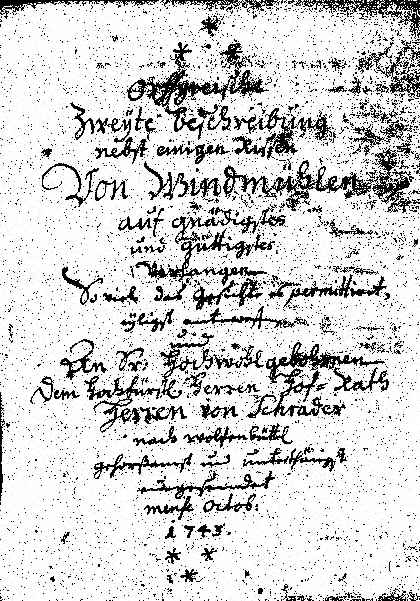 Orffyreische
Zweÿte beschreibung
nebst einigen Rissen
Von Windmühlen
auf gnädigstes
und güttigstes
Verlangen
So viel das gesichte es permittiret,
eyligst entworffen
und
An Sr. Hochwohlgebohrnen
Dem Hochfürstl. Herren Hof-Rath
Herren von Schrader
nach wolffenbüttel
gehorsamst und unterthänigst
eingesendet
mense Octob:
1743.